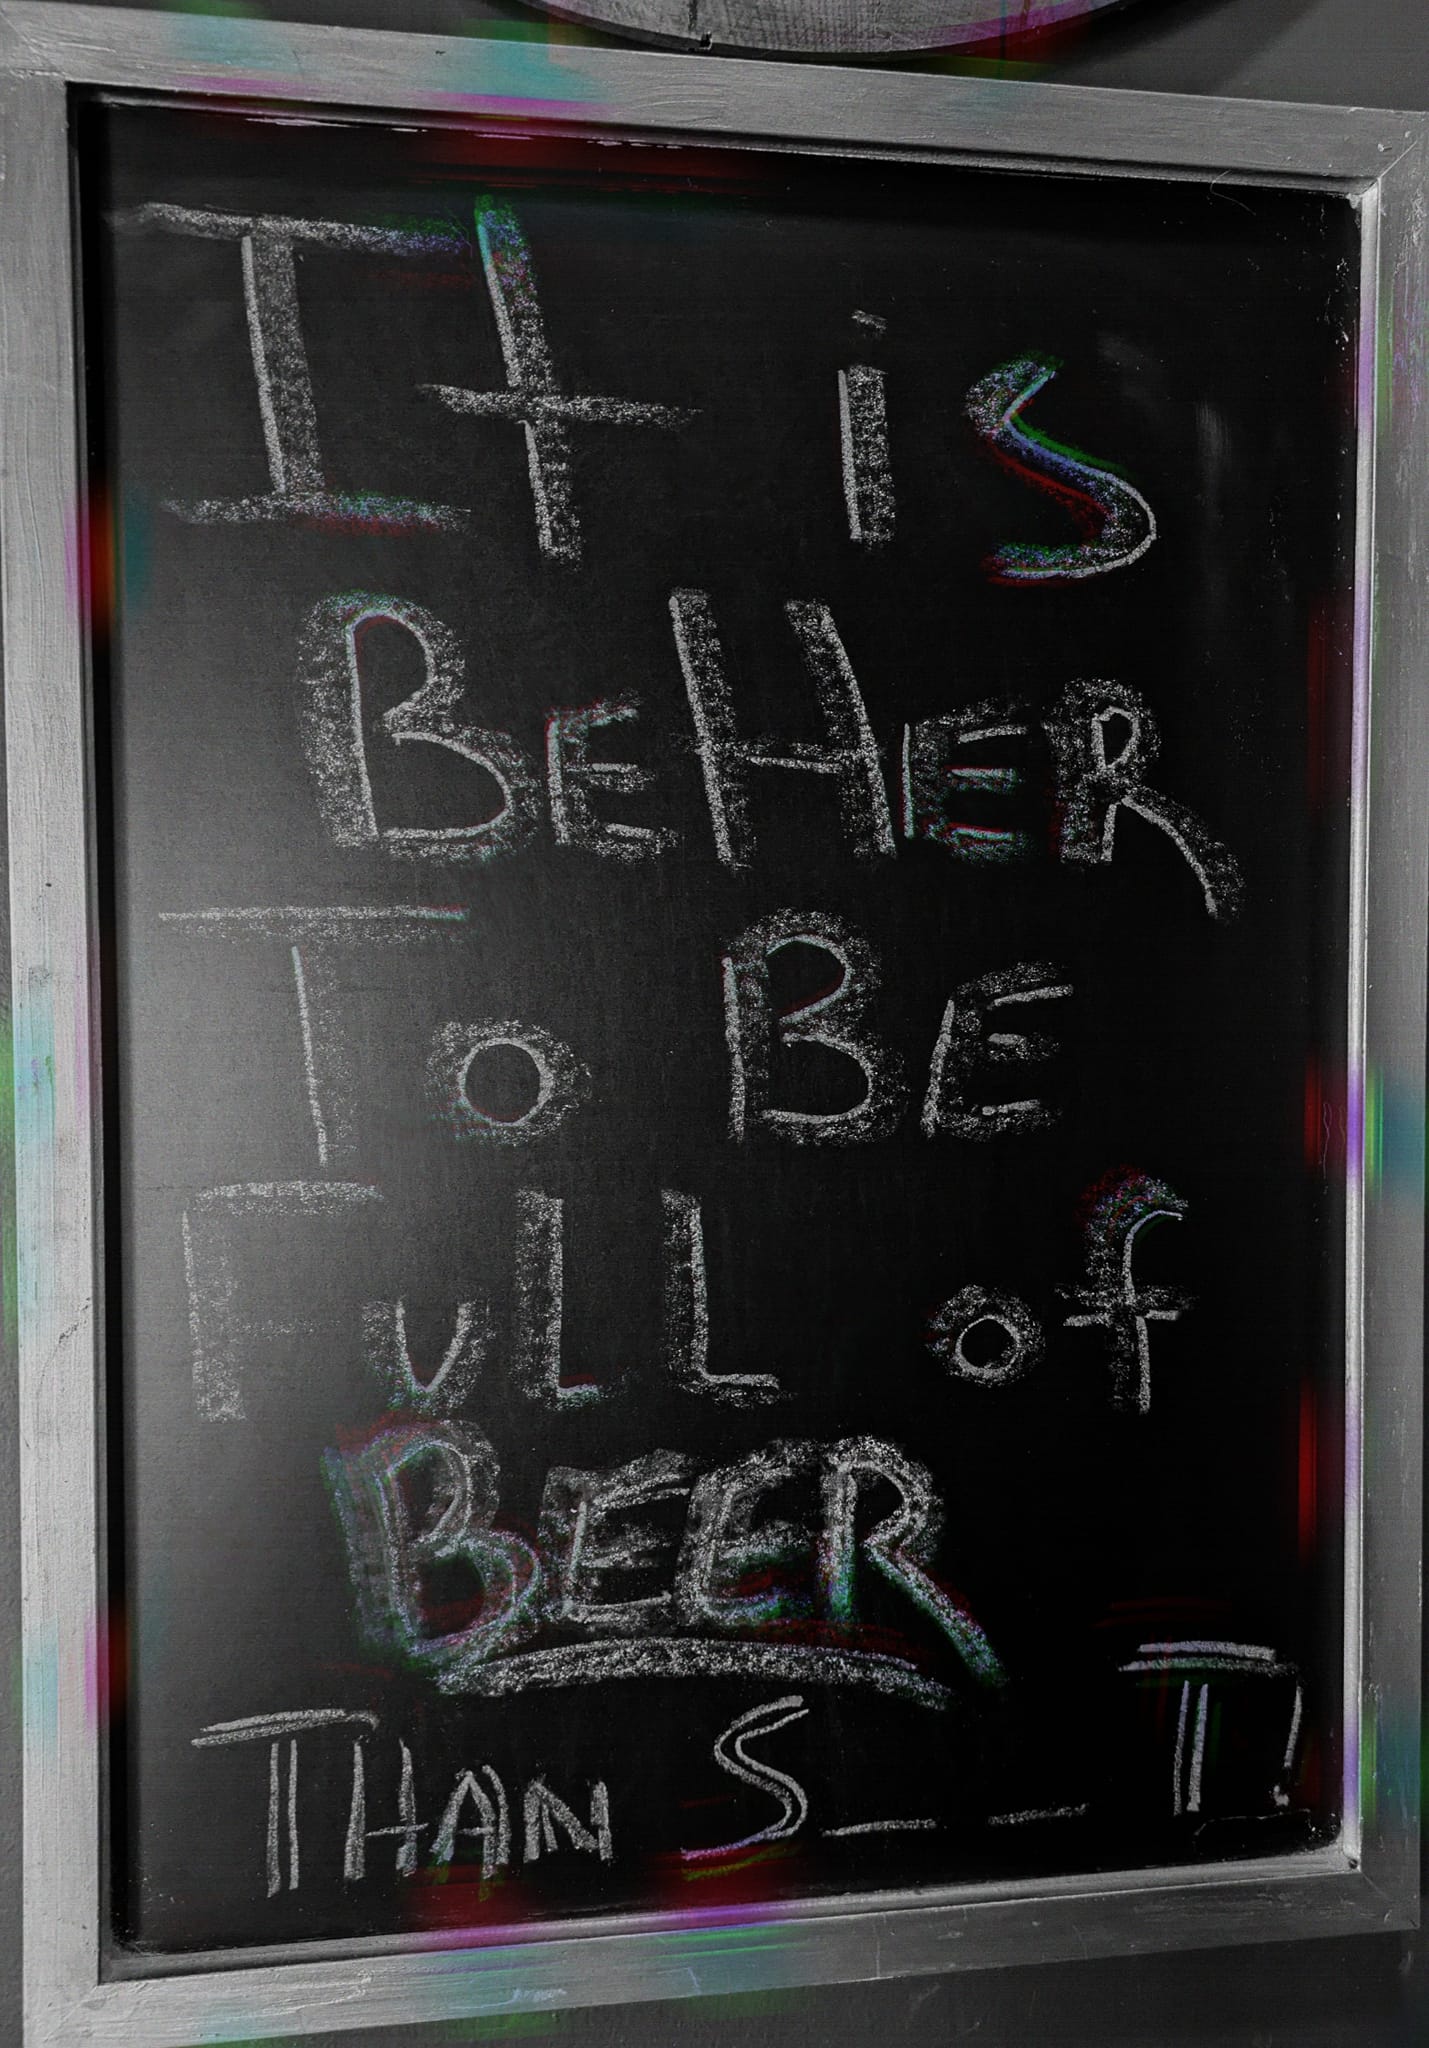 It is
BeTTER
To BE
FuLL of
BEER
THAN S_ _T!